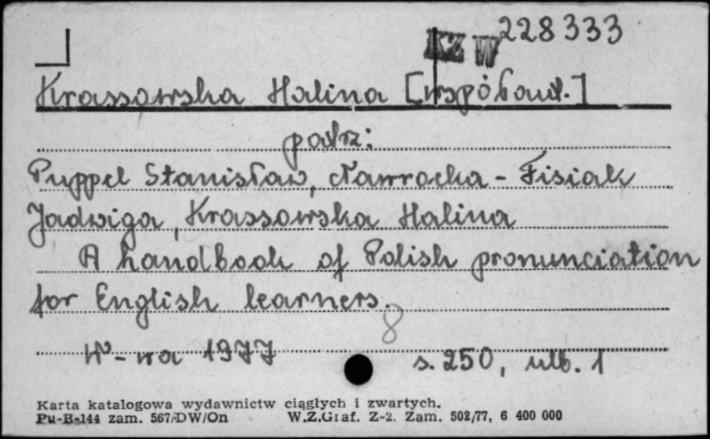 KZ W 228333
Krassowska Halina [współaut.]
patrz:
Puppel Stanisław, Nawrocka-Fisiak
Jadwiga, Krassowska Halina
A handbook of Polish pronunciation
for English learners.
8
W-wa 1977 s. 250, nlb. 1
Karta katalogowa wydawnictw ciągłych i zwartych.
Pu-B-144 zam. 567/DW/On W.Z.Graf. Z-2. Zam. 502/77, 6 400 000